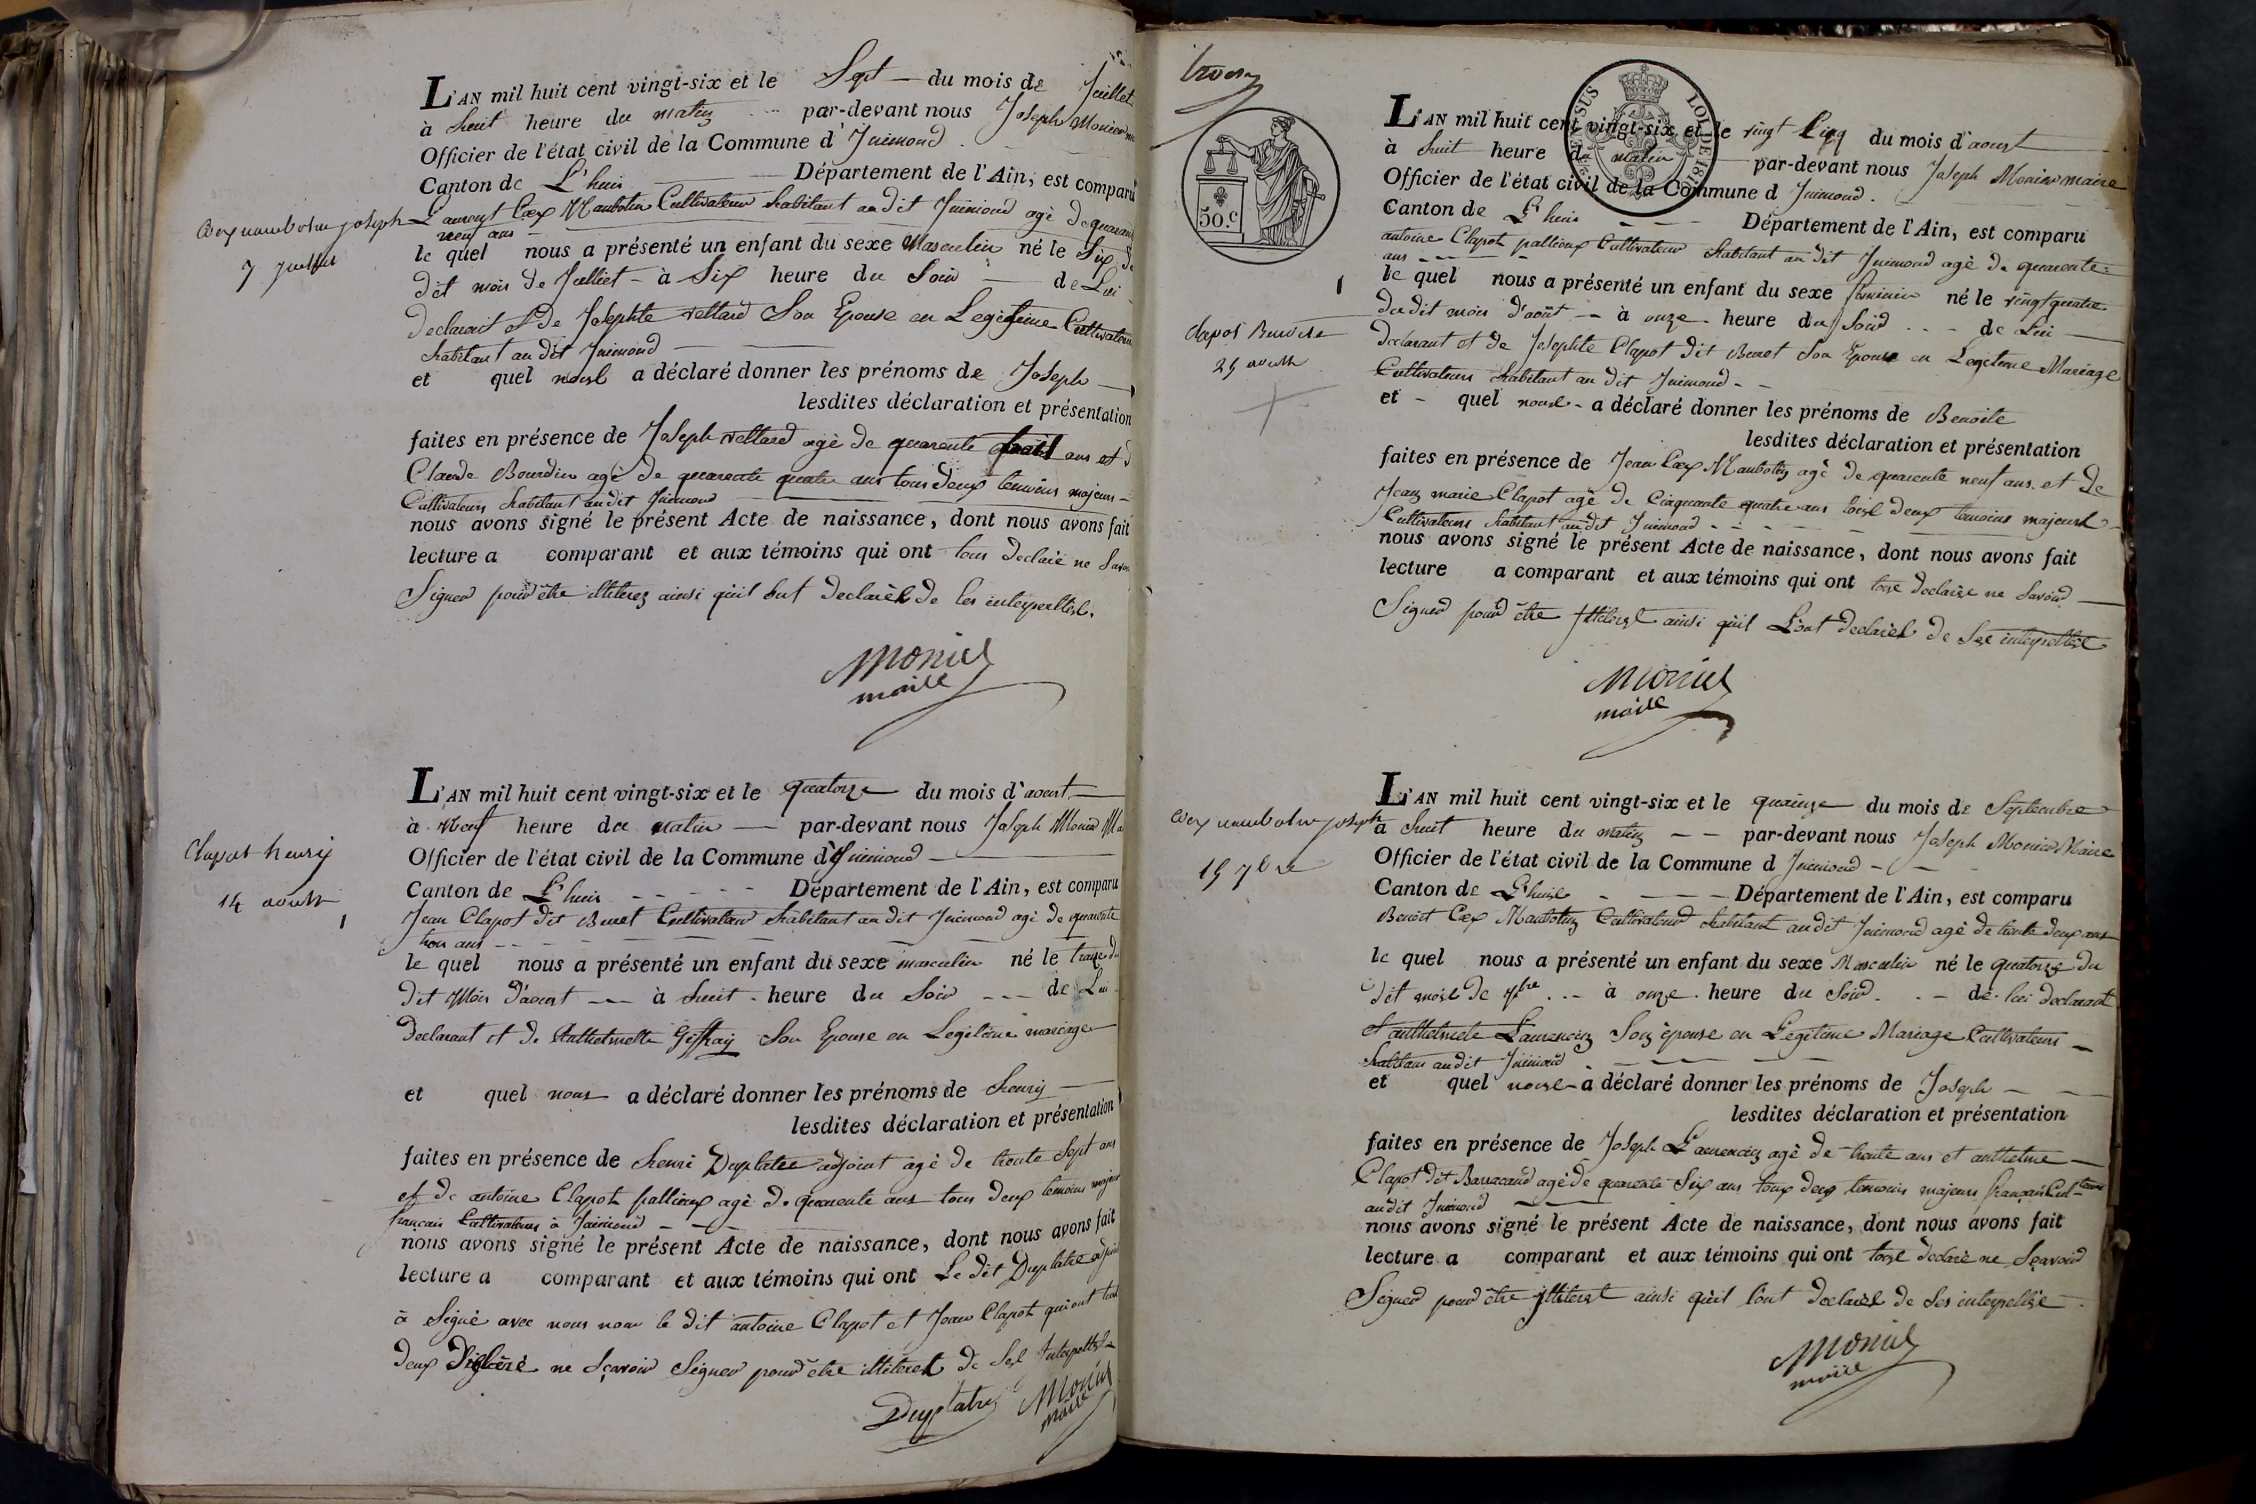 L'AN mil huit cent vingt-six et le Sept du mois de Juillet
à huit heure du matin par-devant nous Joseph Monier
Officier de l'état civil de la Commune d'Inimond
Canton de L'huis Département de l'Ain, est comparu
Laurent Coex Maubotin Cultivateur habitant au dit Inimond agé de quarante
neuf ans
le quel nous a présenté un enfant du sexe Masculin né le Six du
dit mois de Juilliet - à Six heure du Soir de Lui
declarant et de Josephte vettard Son Epouse en Legitime Cultivateurs
habitant au dit Inimond
et quel nous a déclaré donner les prénoms de Joseph
lesdites déclaration et présentation
faites en présence de Joseph vettard agé de quarente huit ans et de
Claude Bourdin agé de quarente quatre ans tous deux temoins majeurs
Cultivateurs habitant au dit Inimond
nous avons signé le présent Acte de naissance, dont nous avons fait
lecture a comparant et aux témoins qui ont tous declaré ne Savoir
Signer pour être illiterez ainsi qu'il ont declarèt de les interpellèt.
Monier
maire
Coex maubotin joseph
7 juillet
L'AN mil huit cent vingt-six et le quatorze du mois d'aoust
à neuf heure du matin par-devant nous Joseph Monier Ma
Officier de l'état civil de la Commune d'Inimond
Canton de L'huis Département de l'Ain, est comparu
Jean Clapot dit Buret Cultivateur habitant au dit Inimond agé de quarente
trois ans
le quel nous a présenté un enfant du sexe masculin né le traize du
dit Mois d'aoust à huit heure du Soir de Lui
declarant et de Anthelmette Geffray Son Epouse en Legitime mariage
et quel nous a déclaré donner les prénoms de henry
lesdites déclaration et présentation
faites en présence de henri Duplatre adjoint agé de trente Sept ans
et de antoine Clapot pallioux agé de quarente ans tous deux temoins majeurs
français Cultivateurs à Inimond
nous avons signé le présent Acte de naissance, dont nous avons fait
lecture a comparant et aux témoins qui ont Le dit Duplatre adjoint
à Signé avec nous non le dit antoine Clapot et Jean Clapot qui ont tous
deux ne Sçavoir Signer pour être illiteret de Sel Interpellèt
Duplatre Monier
maire
Clapot henry
14 aoust
1
trois
50.c
L'AN mil huit cent vingt-six et le vingt Cinq du mois d'aoust
à huit heure du matin par-devant nous Joseph Monier maire
Officier de l'état civil de la Commune d Inimond.
Canton de L'huis Département de l'Ain, est comparu
antoine Clapot pallioux Cultivateur habitant au dit Inimond agé de quarente
ans
le quel nous a présenté un enfant du sexe feminin né le vingt quatre
du dit mois d'aoüt à onze heure du Soir de Lui
declarant et de Josephte Clapot dit Buret Son Epouse en Legitime Mariage
Cultivateurs habitant au dit Inimond
et quel nous a déclaré donner les prénoms de Benoite
lesdites déclaration et présentation
faites en présence de Jean Coex Maubotin agé de quarente neuf ans. et de
Jean marie Clapot agé de Cinquante quatre ans tous deux temoins majeurs
Cultivateurs habitant au dit Inimond
nous avons signé le présent Acte de naissance, dont nous avons fait
lecture a comparant et aux témoins qui ont tous declaré ne Savoir
Signer pour être ainsi qu'il L'ont declarèt de
Monier
maire
1
Clapot Benoite
25 aoust
L'AN mil huit cent vingt-six et le quainze du mois de Septembre
à huit heure du matin par-devant nous Joseph Monier Maire
Officier de l'état civil de la Commune d Inimond
Canton de L'huis Département de l'Ain, est comparu
Benoit Coex Maubotin Cultivateur habitant au dit Inimond agé de trente deux ans
le quel nous a présenté un enfant du sexe Masculin né le quatorze du
dit mois de 7bre à onze heure du Soir de lui declarant
et anthelmete Laurencin Son épouse en Legitime Mariage Cultivateurs
habitans au dit Inimond
et quel nous a déclaré donner les prénoms de Joseph
lesdites déclaration et présentation
faites en présence de Joseph Laurencin agé de trente ans et anthelme
Clapot dit Barracand agé de quarente Six ans toux deux temoins majeurs français Cul-teurs
au dit Inimond
nous avons signé le présent Acte de naissance, dont nous avons fait
lecture a comparant et aux témoins qui ont tous declaré ne Sçavoir
Signer pour être ainsi qu'il l'ont declarèt de Ses interpellée
Monier
maire
Coex maubotin joseph
15 7bre